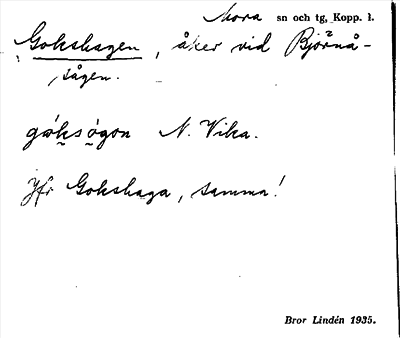 Mora sn och tg, Kopp. l.
Gokshagen, åker vid Björnå-
sågen.
gọ́ksǫ́gon N. Vika.
Jfr Gokshaga, samma!
Bror Lindén 1935.